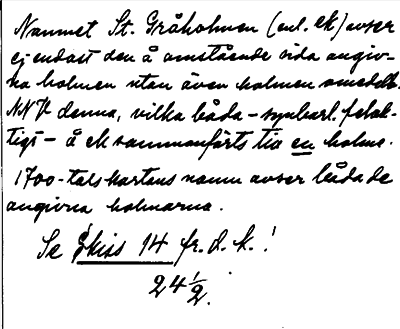 Namnet St. Gråholmen (enl. ek) avser
ej endast den å omstående sida angiv-
na holmen utan även holmen omedelb.
NNV denna, vilka båda - synbarl. felak-
tigt - å ek sammanförts till en holme.
1700-talskartans namn avser båda de
angivna holmarna.
Se skiss 14 fr. d. k.!
24 1/2.